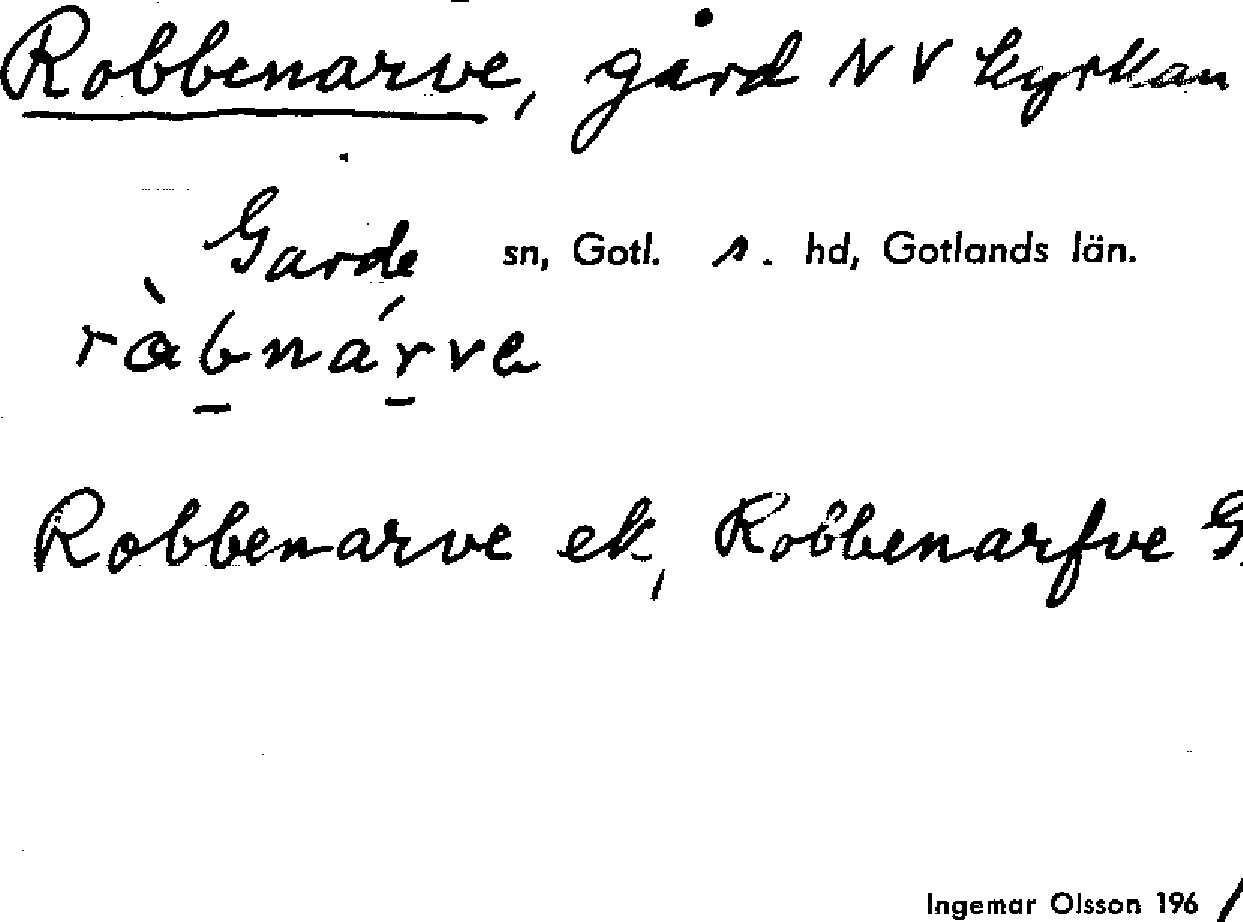 Robbenarve, gård NV kyrkan
Garde sn, Gotl. s. hd, Gotlands län.
ràbnárve
Robbenarve ek, Robbenarfve G
Ingemar Olsson 196/